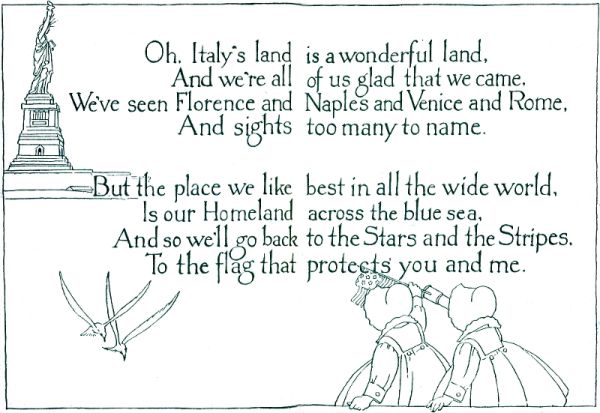 Oh, Italy's land is a wonderful land,
And we're all of us glad that we came,
We've seen Florence and Naples and Venice and Rome,
And sights too many to name.
But the place we like best in all the wide world,
Is our Homeland across the blue sea,
And so we'll go back to the Stars and the Stripes,
To the flag that protects you and me.